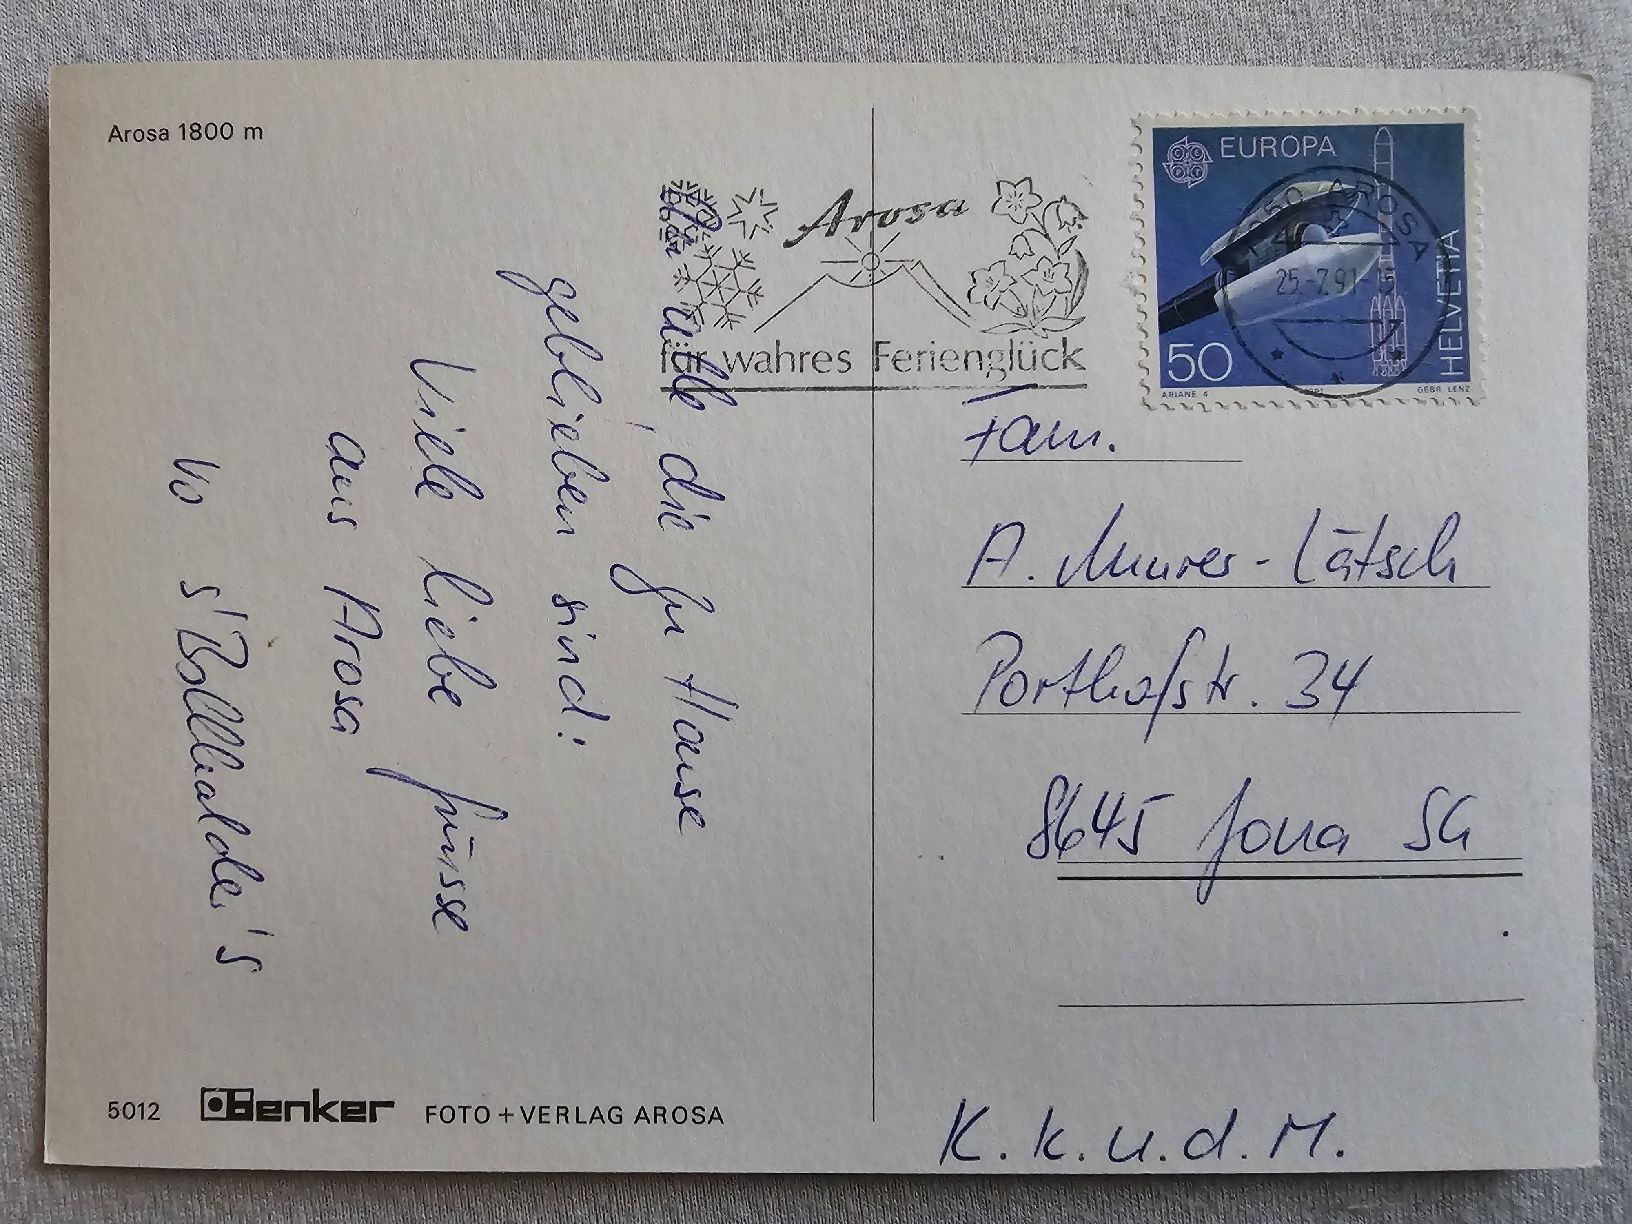 Arosa 1800 m
Arosa
für wahres Ferienglück
EUROPA
HELVETIA
50
ARIANE 4
1991
GEBR. LENZ
AROSA
25.-7.91-15
alle, die zu Hause
geblieben sind!
Viele liebe
aus Arosa
vo s'Bollhalder's
Fam.
A. Murer-Lätsch
Porthofstr. 34
8645 Jona SG
K.k.u.d.M.
5012 Benker FOTO+VERLAG AROSA